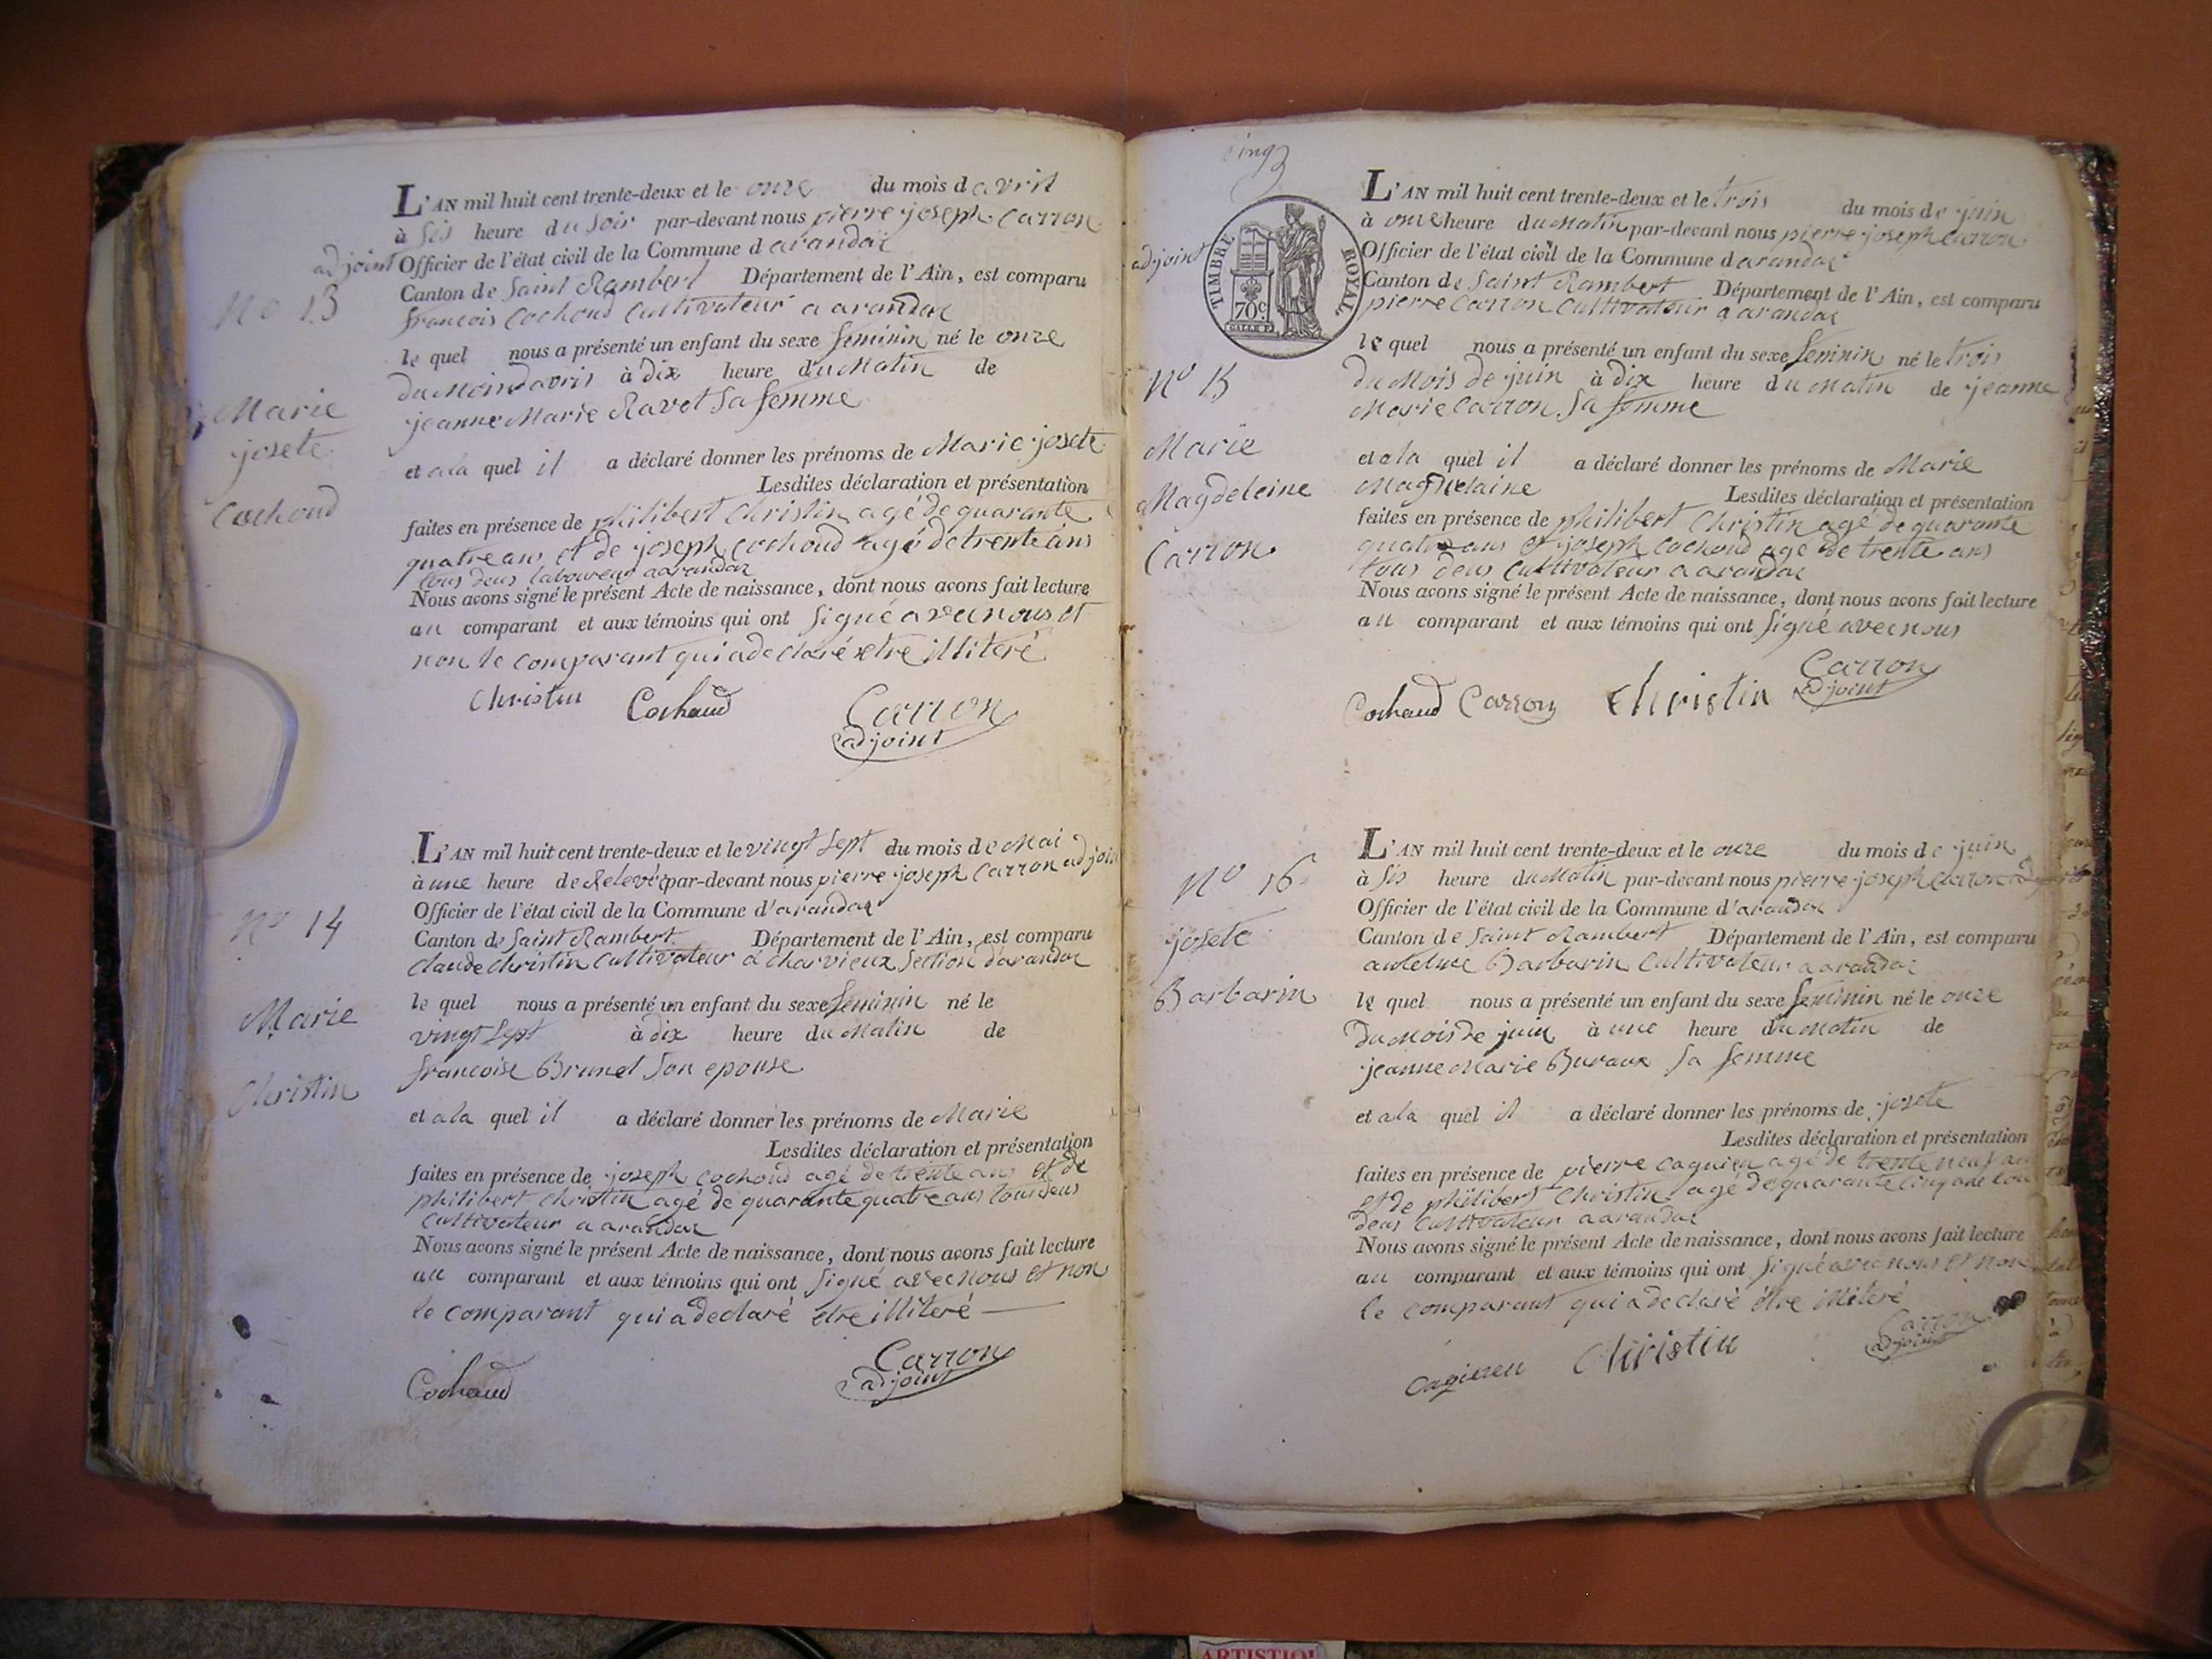 L'AN mil huit cent trente-deux et le onze du mois d avril
à sis heure du soir par-devant nous pierre joseph Carron
adjoint Officier de l'état civil de la Commune d arandac
Canton de Saint Rambert Département de l'Ain, est comparu
francois Cochoud Cultivateur a arandac
le quel nous a présenté un enfant du sexe feminin né le onze
du Mois d'avris à dix heure du Matin de
jeanne Marie Ravet sa femme
et a la quel il a déclaré donner les prénoms de Marie josete
Lesdites déclaration et présentation
faites en présence de philibert Christin agé de quarante
quatre ans et de joseph Cochoud agé de trente ans
tous deus laboureur a arandac
Nous avons signé le présent Acte de naissance, dont nous avons fait lecture
au comparant et aux témoins qui ont signé avec nous et
non le comparant qui a declaré etre illiteré
Christin Cochaud Carron
adjoint
No 13
Marie
josete
Cochoud
L'AN mil huit cent trente-deux et le vingt sept du mois de Mai
à une heure de Relevée par-devant nous pierre joseph Carron adjoin
Officier de l'état civil de la Commune d'arandac
Canton de Saint Rambert Département de l'Ain, est comparu
Claude Christin Cultivateur a Charvieux section d'arandac
le quel nous a présenté un enfant du sexe feminin né le
vingt sept à dix heure du Matin de
francoise Brunet son epouse
et a la quel il a déclaré donner les prénoms de Marie
Lesdites déclaration et présentation
faites en présence de joseph Cochoud agé de trente ans et de
philibert Christin agé de quarante quatre ans tous deus
Cultivateur a arandac
Nous avons signé le présent Acte de naissance, dont nous avons fait lecture
au comparant et aux témoins qui ont signé avec nous et non
le comparant qui a declaré etre illiteré
Cochaud Carron
adjoint
No 14
Marie
Christin
TIMBRE ROYAL
70c
L'AN mil huit cent trente-deux et le trois du mois de juin
à onze heure du Matin par-devant nous pierre joseph Carron
adjoint Officier de l'état civil de la Commune d arandac
Canton de Saint Rambert Département de l'Ain, est comparu
pierre Carron Cultivateur a arandac
le quel nous a présenté un enfant du sexe feminin né le trois
du Mois de juin à dix heure du Matin de jeanne
Marie Carron sa femme
et a la quel il a déclaré donner les prénoms de Marie
Lesdites déclaration et présentation
faites en présence de philibert Christin agé de quarante
quatre ans et joseph Cochoud agé de trente ans
tous deus Cultivateur a arandac
Nous avons signé le présent Acte de naissance, dont nous avons fait lecture
au comparant et aux témoins qui ont signé avec nous
Cochaud Carron Christin Carron
adjoint
No 15
Marie
Magdeleine
Carron
L'AN mil huit cent trente-deux et le onze du mois de juin
à sis heure du Matin par-devant nous pierre joseph Carron
Officier de l'état civil de la Commune d'arandac
Canton de Saint Rambert Département de l'Ain, est comparu
antelme Barbarin Cultivateur a arandac
le quel nous a présenté un enfant du sexe feminin né le onze
du Mois de juin à une heure du Matin de
jeanne Marie Buraux sa femme
et a la quel il a déclaré donner les prénoms de josete
Lesdites déclaration et présentation
faites en présence de pierre agé de trente neuf an
et de philibert Christin agé de quarante cinq
deus Cultivateur a arandac
Nous avons signé le présent Acte de naissance, dont nous avons fait lecture
au comparant et aux témoins qui ont signé avec nous et non
le comparant qui a declaré être illiteré
Christin Carron
adjoint
No 16
josete
Barbarin
ARTISTIQ